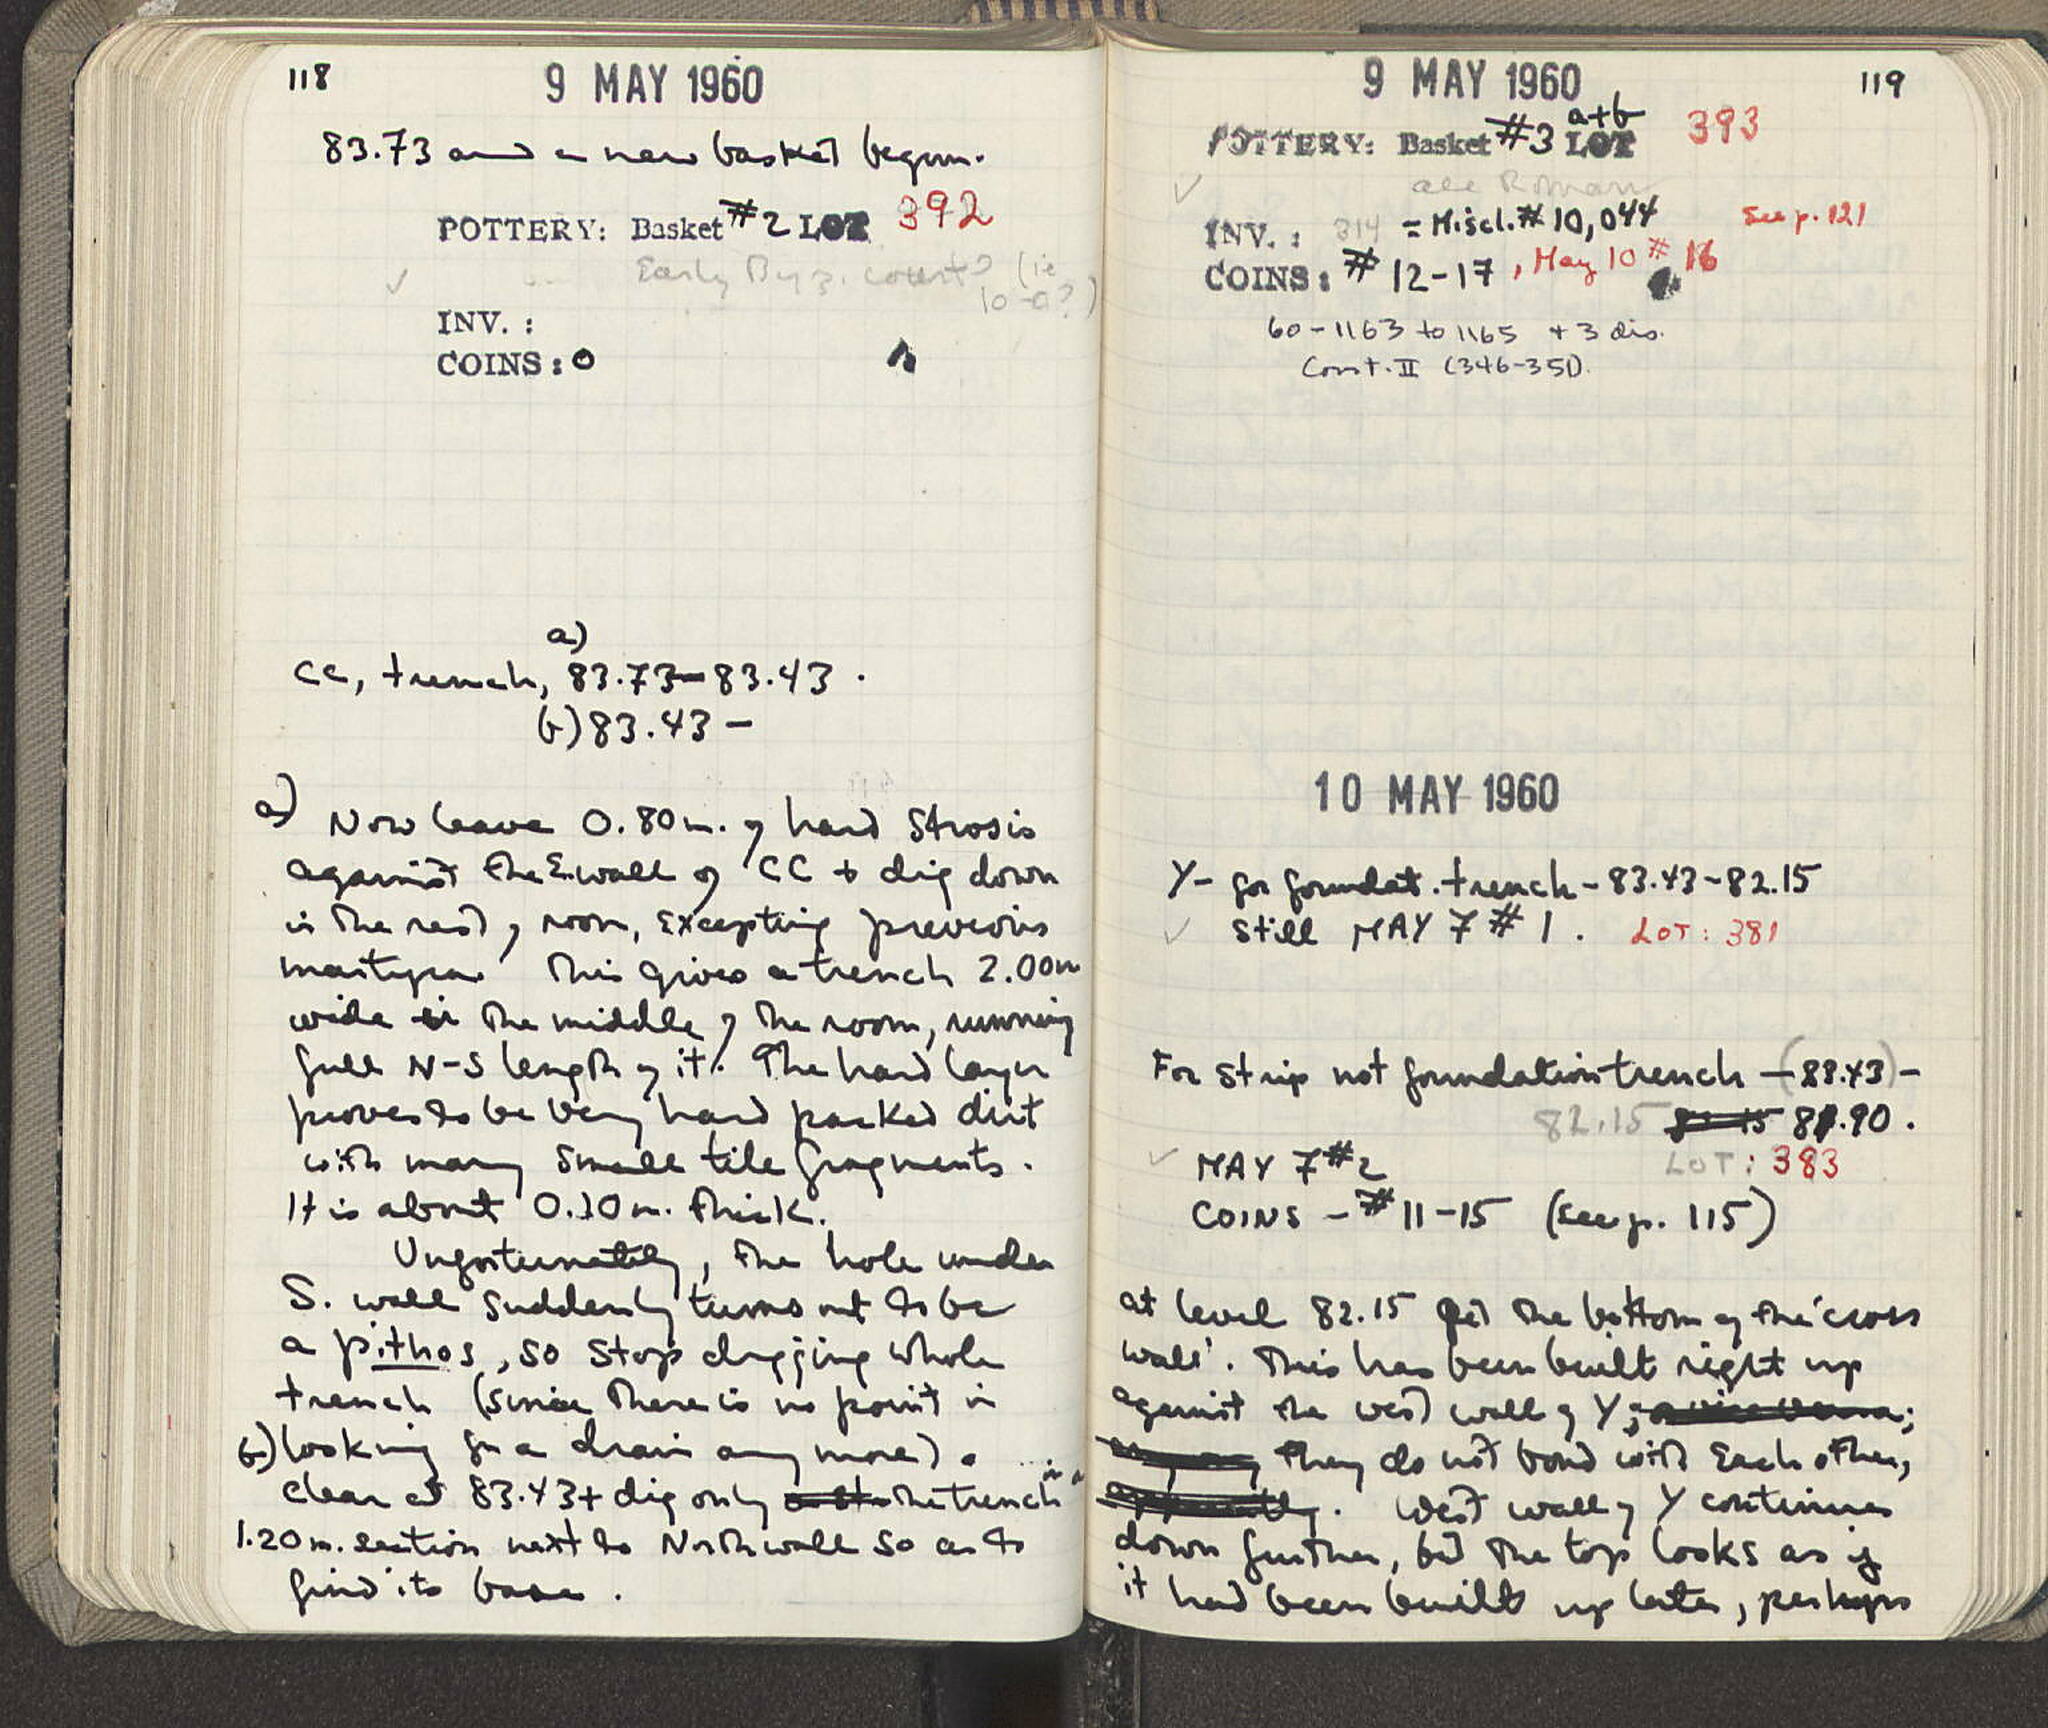 118
9 MAY 1960
83.73 and a new basket begun.
POTTERY: Basket #2 LOT 392
Early Byz. (ie
10-
INV. :
COINS: 0
a)
CC, trench, 83.73-83.43.
(b) 83.43 -
a) Now leave 0.80 m. of hard strosis
against the E wall of CC + dig down
in the rest of room, excepting previous
martyra. This gives a trench 2.00m
wide in the middle of the room, running
full N-S length of it. The hard layer
proves to be very hard packed dirt
with many small tile fragments.
It is about 0.10 m. thick.
Unfortunately, the hole under
S. wall suddenly turns out to be
a pithos, so stop digging whole
trench (since there is no point in
b) looking for a drain any more).
clear at 83.43 + dig only the trench in a
1.20 m. section next to North wall so as to
find its base.
119
9 MAY 1960
POTTERY: Basket #3 a+b LOT 393
all Roman
INV. : 314 = Miscl. # 10,044 See p. 121
COINS: # 12-17, May 10 # 16
60-1163 to 1165 + 3 dis.
Const. II (346-351).
10 MAY 1960
Y- for foundat. trench - 83.43-82.15
still MAY 7 # 1. LOT: 381
For strip not foundation trench - (83.43) -
82.15 81.90.
MAY 7 #2 LOT: 383
COINS - # 11-15 (See p. 115)
At level 82.15 get the bottom of the 'cross
wall'. This has been built right up
against the west wall of Y;
they do not bond with each other,
West wall of Y continues
down further, but the top looks as if
it had been built up later, perhaps